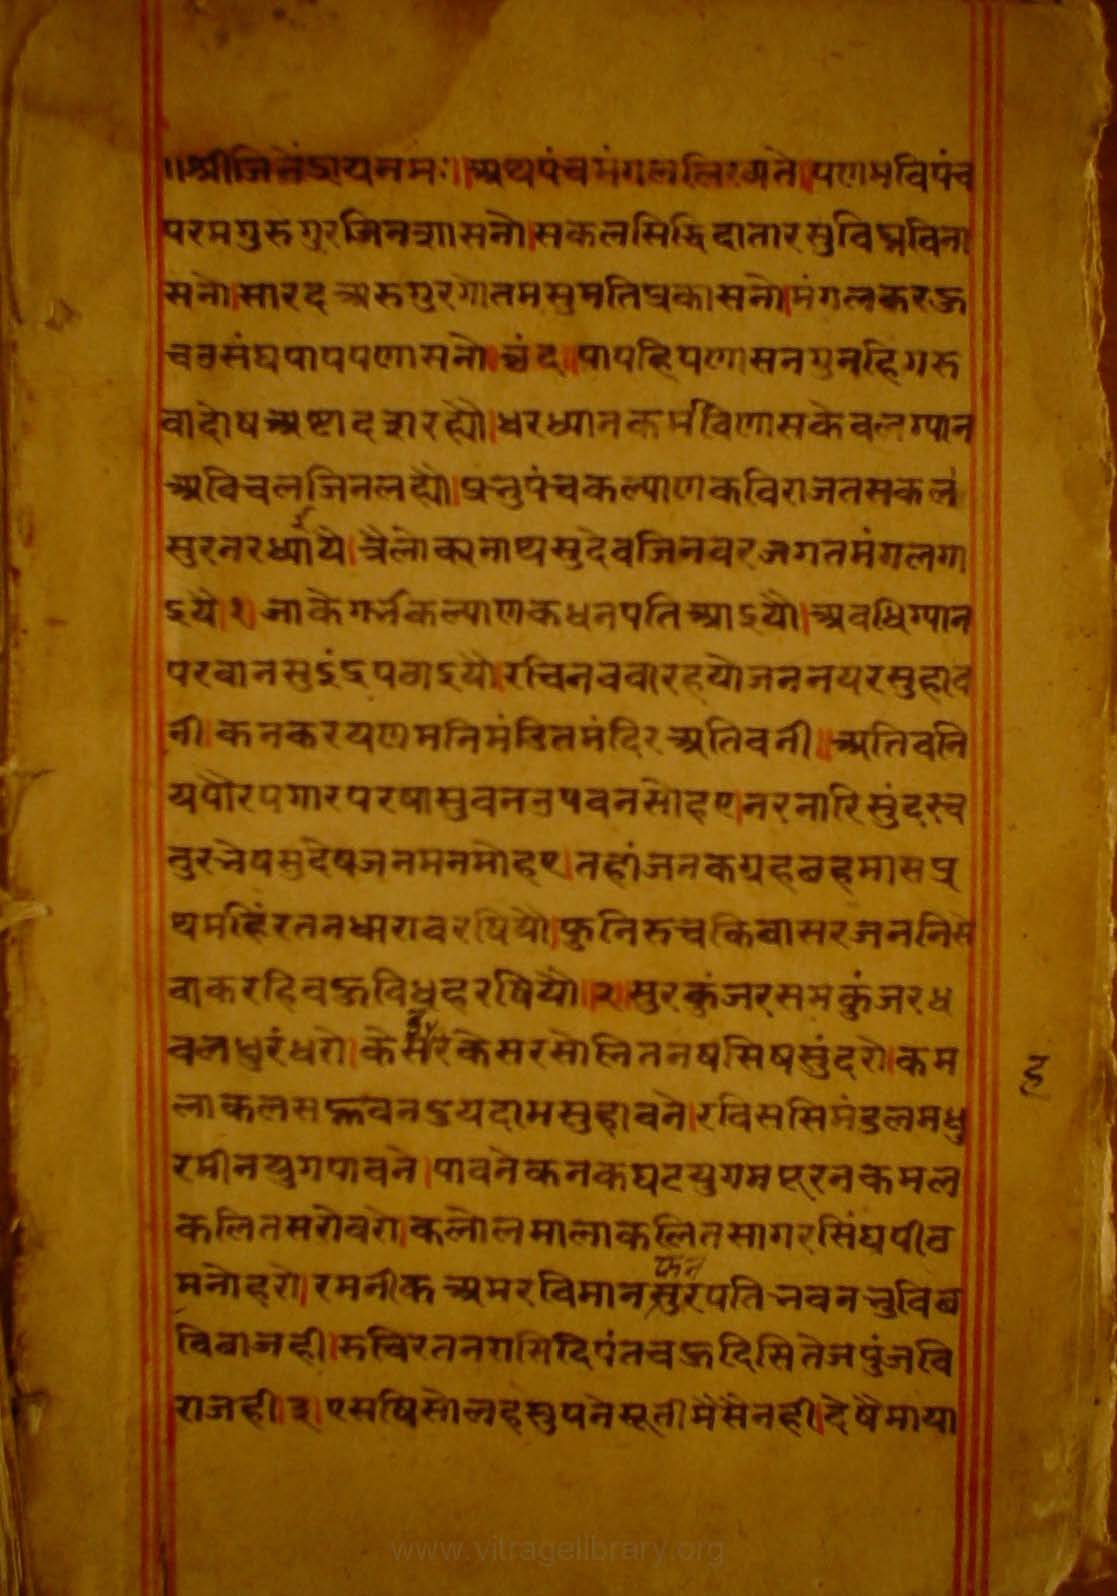 ॥श्रीजिनेंद्रायनमः॥अथपंचमंगललिख्यते।पणमविपंच
परमगुरुगुरजिनशासनो।सकलसिद्धिदातारसुविघ्नविना
सनो।सारदअरुगुरगोतमसुमतिप्रकासनो।मंगलकरऊ
चवसंघपापपणासनो।छंद॥पापहिपणासनगुनहिगरु
वादोषअष्टादशरह्यौ।धरध्यानकर्मविणासकेवलग्यान
अविचलजिनलह्यो।प्रनुपंचकल्याणकविराजतसकल
सुरनरध्यांये।त्रैलोक्यनाथसुदेवजिनवरजगतमंगलगा
ऽये॥१॥जाकेगर्भकल्याणकधनपतिआऽयौ।अवधिग्यान
परवानसुऽंऽपठाऽयौ।रचिनववारहयोजननयरसुहाव
नी।कनकरयणमनिमंडितमंदिरअतिवनी॥अतिवनि
यपौरपगारपरषासुवनउपवनसोहए।नरनारिसुंदरच
तुरनेषसुदेषजनमनमोहए।तहांजनकग्रहछहमासप्र
थमहिंरतनधारावरषियौ।फुनिरुचकिवासरजननिसे
वाकरहिवऊविधहरषियौ॥२॥सुरकुंजरसमकुंजरध
वलधुरंधरो।केसरिकेसरसोनितनषसिषसुंदरो।कम
लाकलसन्हवनऽयदामसुहावने।रविससिमंडलमधु
रमीनयुगपावने।पावनेकनकघटयुगमपूरनकमल
कलितसरोवरो।कलोलमालाकलितसागरसिंघपीठ
मनोहरो।रमनीकअमरविमानसुरपतिनवननुविछ
फन
विबाजही।रुचिरतनरासिदिपंतचऊदिसितेजपुंजवि
राजही॥३॥एसषिसोलहसुपनेसूतीमैसैनही।देषैमाया
ह
www.vitragelibrary.org